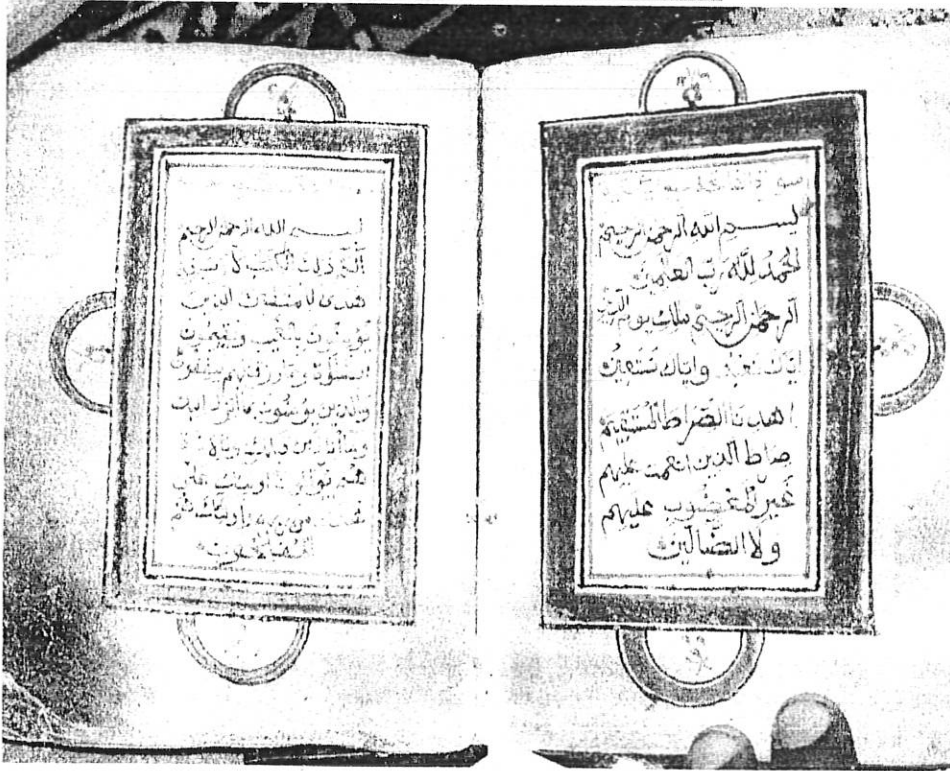 سورة الفاتحة
بسم الله الرحمن الرحيم
الحمد لله رب العلمين
الرحمن الرحيم ملك يوم الدين
اياك نعبد واياك نستعين
اهدنا الصراط المستقيم
صراط الذين انعمت عليهم
غير المغضوب عليهم
ولا الضالين
بسم الله الرحمن الرحيم
الم ذلك الكتب لا ريب فيه
هدى للمتقين الذين
يؤمنون بالغيب ويقيمون
الصلوة ومما رزقنهم ينفقون
والذين يؤمنون بما انزل اليك
وما انزل من قبلك وبالاخرة
هم يوقنون اوليك على
هدى من ربهم واوليك هم
المفلحون